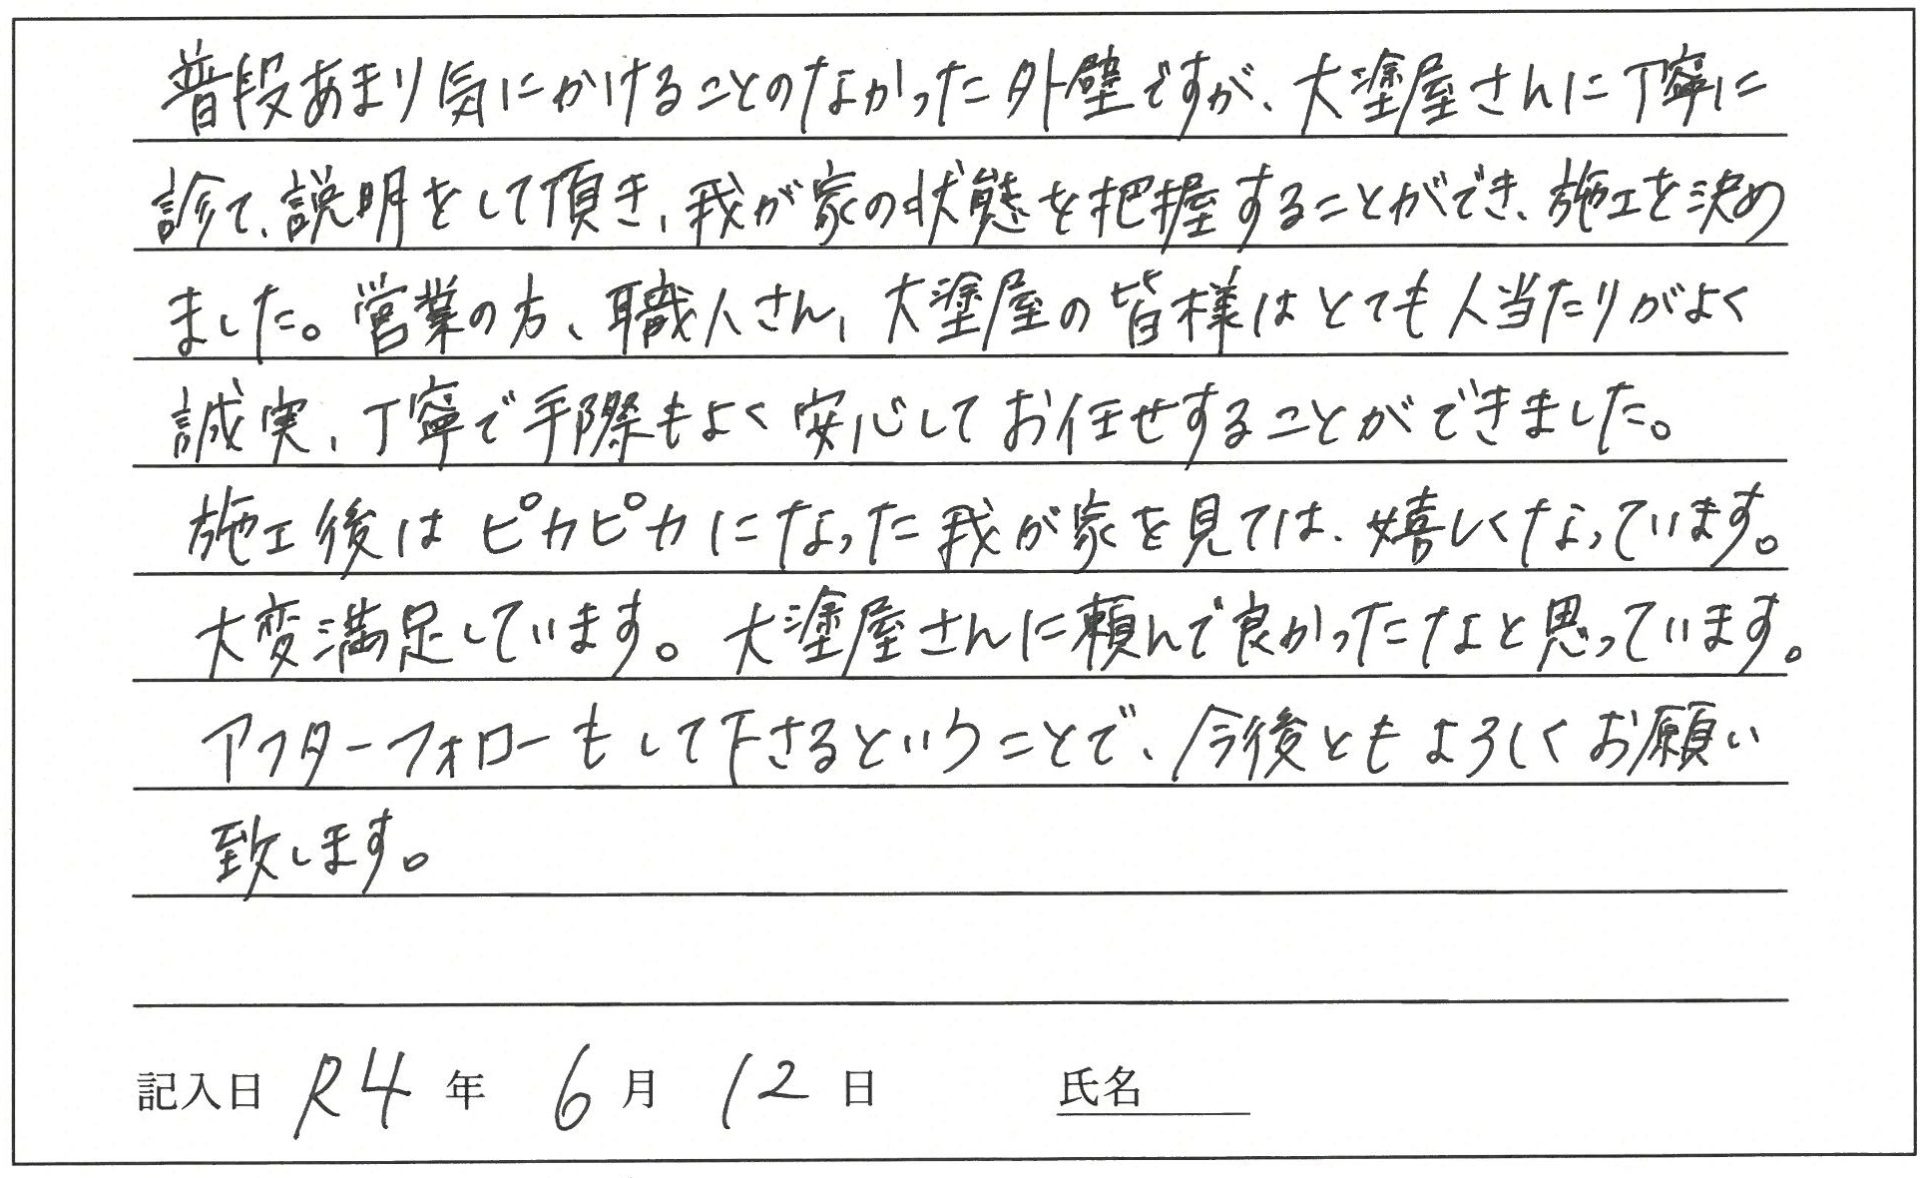 普段あまり気にかけることのなかった外壁ですが、大塗屋さんに丁寧に
診て、説明をして頂き、我が家の状態を把握することができ、施工を決め
ました。営業の方、職人さん、大塗屋の皆様はとても人当たりがよく
誠実、丁寧で手際もよく安心してお任せすることができました。
施工後はピカピカになった我が家を見ては、嬉しくなっています。
大変満足しています。大塗屋さんに頼んで良かったなと思っています。
アフターフォローもして下さるということで、今後ともよろしくお願い
致します。
記入日 R4 年 6 月 12 日 氏名